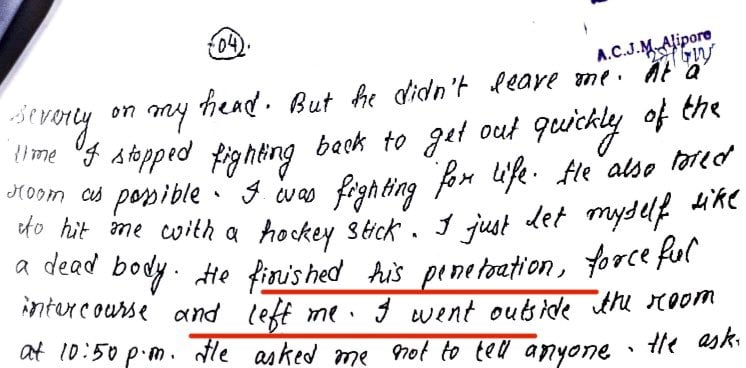 04
A.C.J.M. Alipore
severly on my head. But he didn't leave me. At a
time I stopped fighting back to get out quickly of the
room as possible. I was fighting for life. He also tired
to hit me with a hockey stick. I just let myself like
a dead body. He finished his penetration, forceful
intercourse and left me. I went outside the room
at 10:50 p.m. He asked me not to tell anyone. He ask